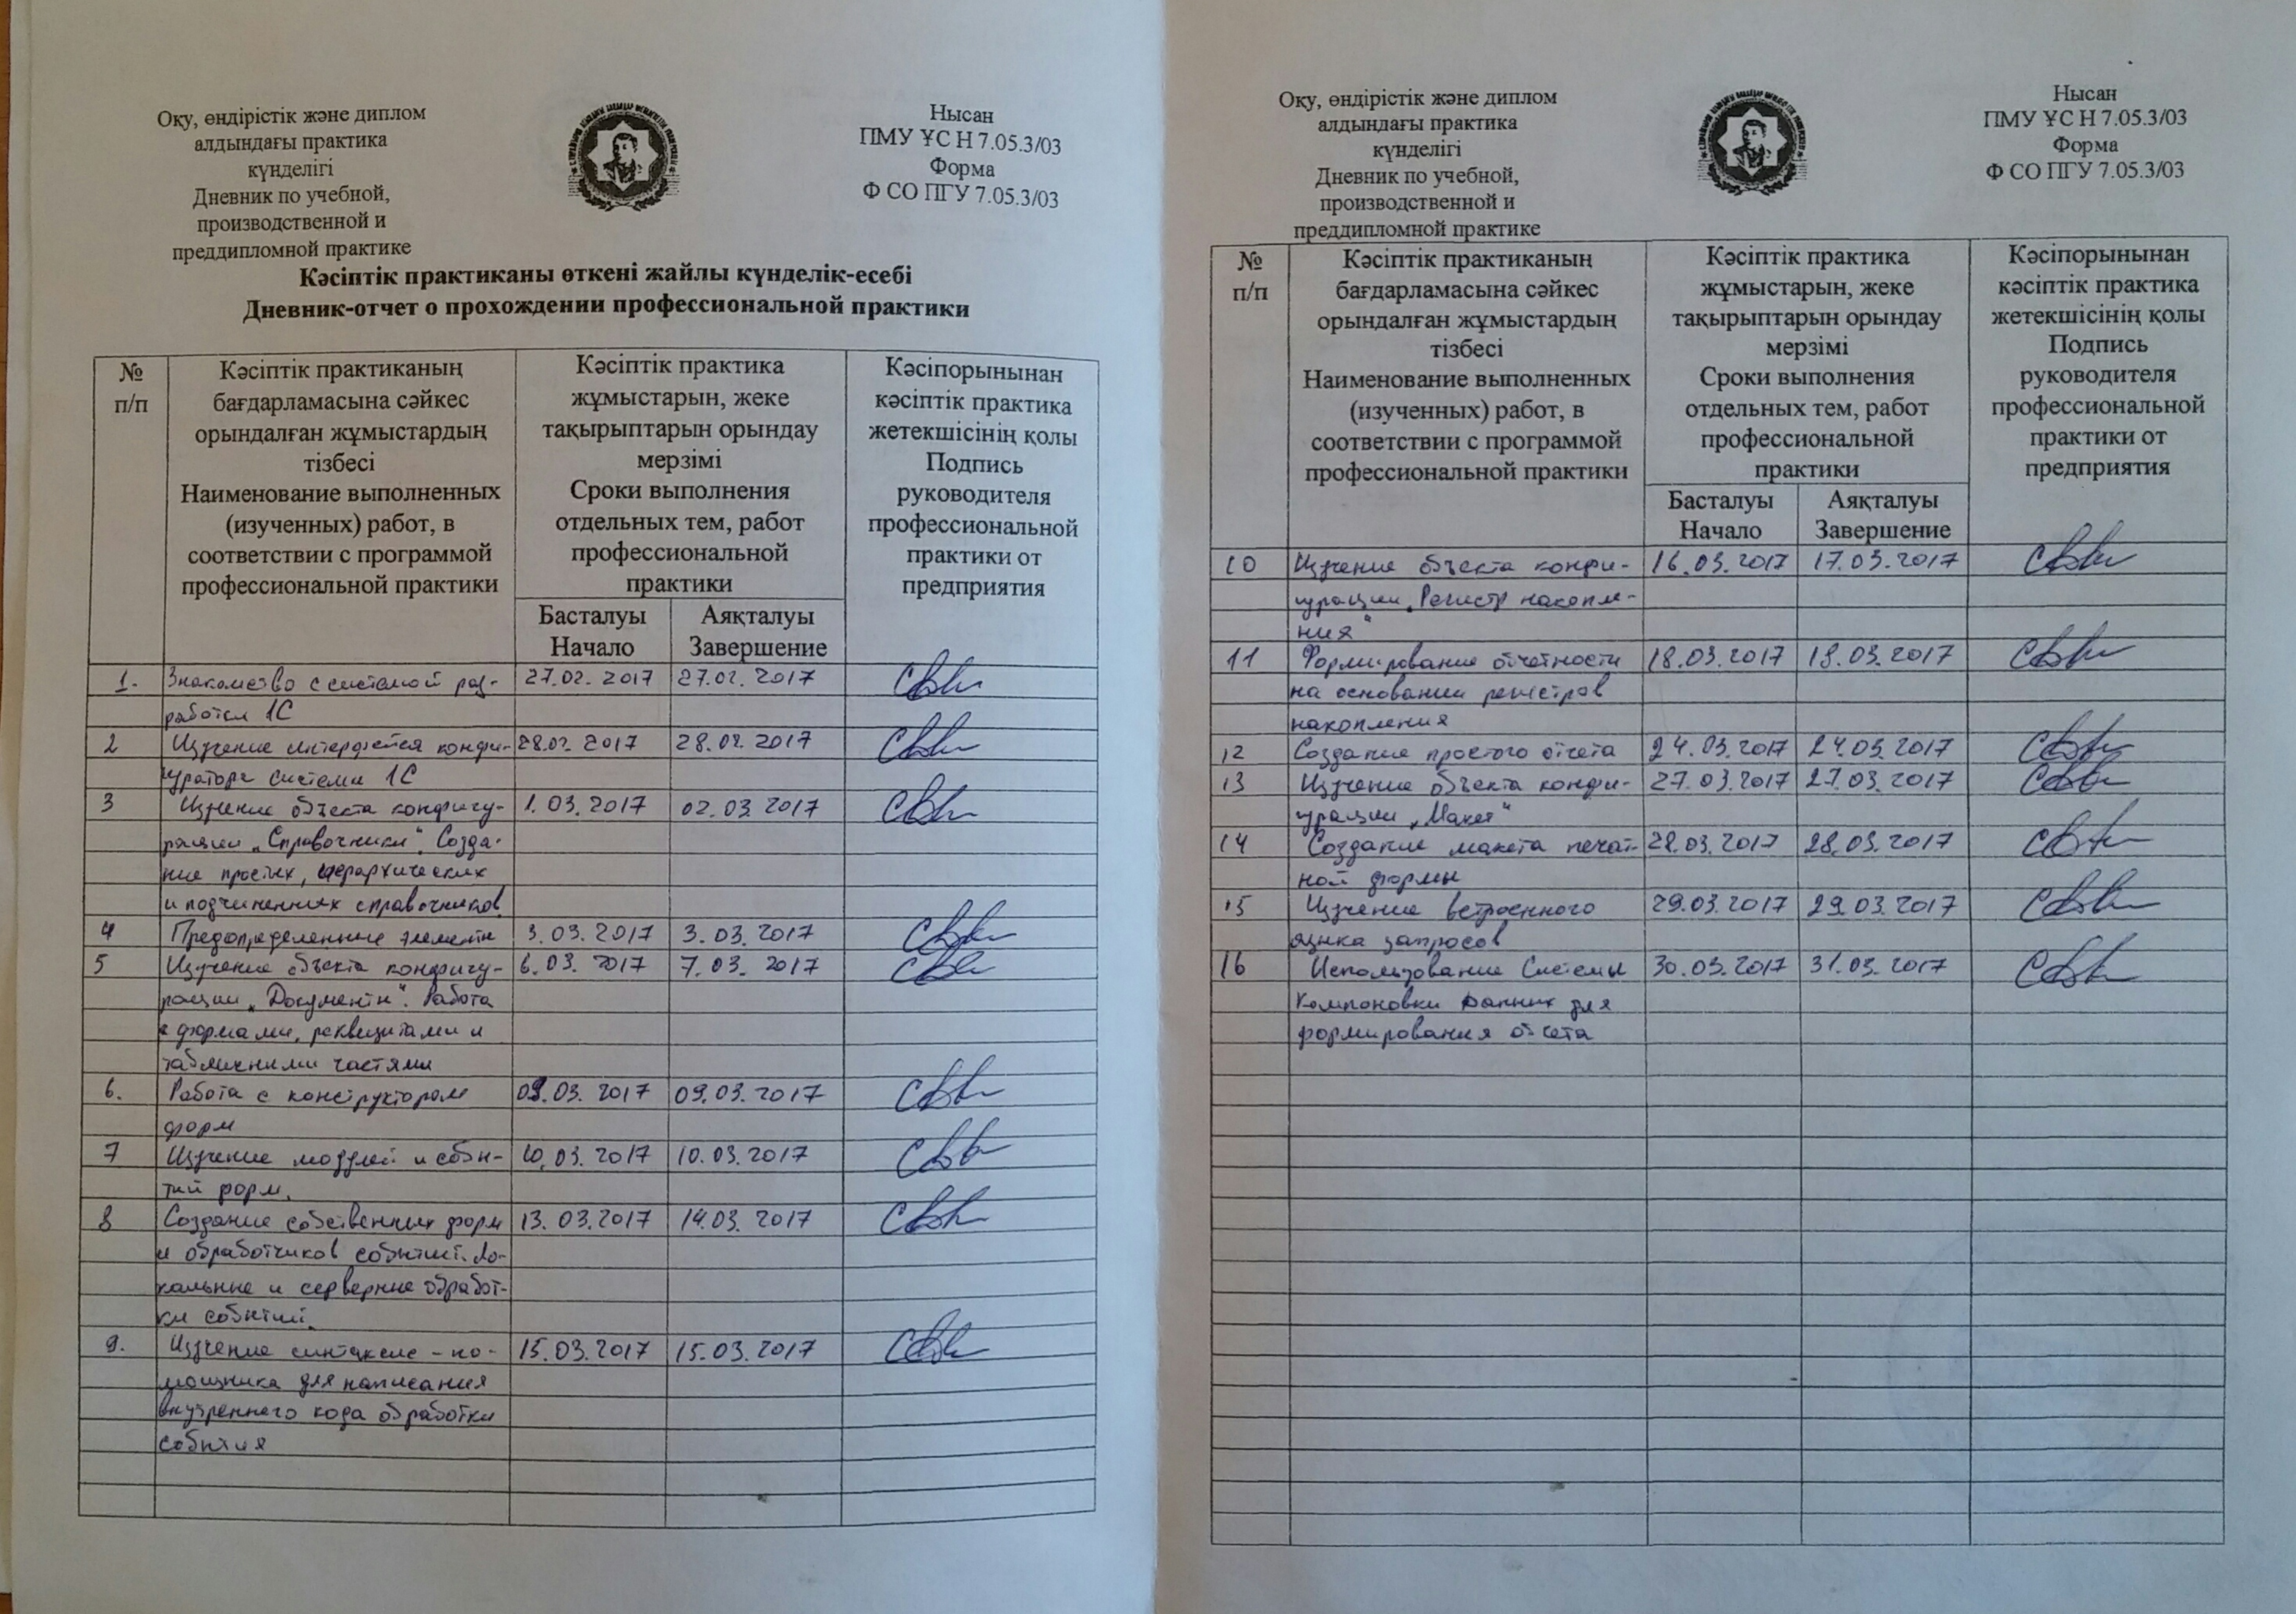 Оқу, өндірістік және диплом
алдындағы практика
күнделігі
Дневник по учебной,
производственной и
преддипломной практике
Нысан
ПМУ ҰС Н 7.05.3/03
Форма
Ф СО ПГУ 7.05.3/03
Кәсіптік практиканы өткені жайлы күнделік-есебі
Дневник-отчет о прохождении профессиональной практики
№
п/п
Кәсіптік практиканың
бағдарламасына сәйкес
орындалған жұмыстардың
тізбесі
Наименование выполненных
(изученных) работ, в
соответствии с программой
профессиональной практики
Кәсіптік практика
жұмыстарын, жеке
тақырыптарын орындау
мерзімі
Сроки выполнения
отдельных тем, работ
профессиональной
практики
Басталуы
Начало
Аяқталуы
Завершение
Кәсіпорынынан
кәсіптік практика
жетекшісінің қолы
Подпись
руководителя
профессиональной
практики от
предприятия
1. Знакомство с системой раз- 27.02.2017 27.02.2017
работки 1С
2 Изучение интерфейса конфи- 28.02.2017 28.02.2017
гуратора системы 1С
3 Изучение объекта конфигу- 1.03.2017 02.03.2017
рации „Справочники“. Созда-
ние простых, иерархических
и подчиненных справочников
4 Предопределенные элементы 3.03.2017 3.03.2017
5 Изучение объекта конфигу- 6.03.2017 7.03.2017
рации „Документы“. Работа
с формами, реквизитами и
табличными частями
6. Работа с конструктором 09.03.2017 09.03.2017
форм
7 Изучение модулей и собы- 10.03.2017 10.03.2017
тий форм.
8 Создание собственных форм 13.03.2017 14.03.2017
и обработчиков событий. Ло-
кальные и серверные обработ-
ки событий.
9. Изучение синтаксис - по- 15.03.2017 15.03.2017
мощника для написания
внутреннего кода обработки
события
Оқу, өндірістік және диплом
алдындағы практика
күнделігі
Дневник по учебной,
производственной и
преддипломной практике
Нысан
ПМУ ҰС Н 7.05.3/03
Форма
Ф СО ПГУ 7.05.3/03
№
п/п
Кәсіптік практиканың
бағдарламасына сәйкес
орындалған жұмыстардың
тізбесі
Наименование выполненных
(изученных) работ, в
соответствии с программой
профессиональной практики
Кәсіптік практика
жұмыстарын, жеке
тақырыптарын орындау
мерзімі
Сроки выполнения
отдельных тем, работ
профессиональной
практики
Басталуы
Начало
Аяқталуы
Завершение
Кәсіпорынынан
кәсіптік практика
жетекшісінің қолы
Подпись
руководителя
профессиональной
практики от
предприятия
10 Изучение объекта конфи- 16.03.2017 17.03.2017
гурации „Регистр накопле-
ния“
11 Формирование отчетности 18.03.2017 18.03.2017
на основании регистров
накопления
12 Создание простого отчета 24.03.2017 24.03.2017
13 Изучение объекта конфи- 27.03.2017 27.03.2017
гурации „Макет“
14 Создание макета печат- 28.03.2017 28.03.2017
ной формы
15 Изучение встроенного 29.03.2017 29.03.2017
языка запросов
16 Использование Системы 30.03.2017 31.03.2017
Компоновки данных для
формирования отчета